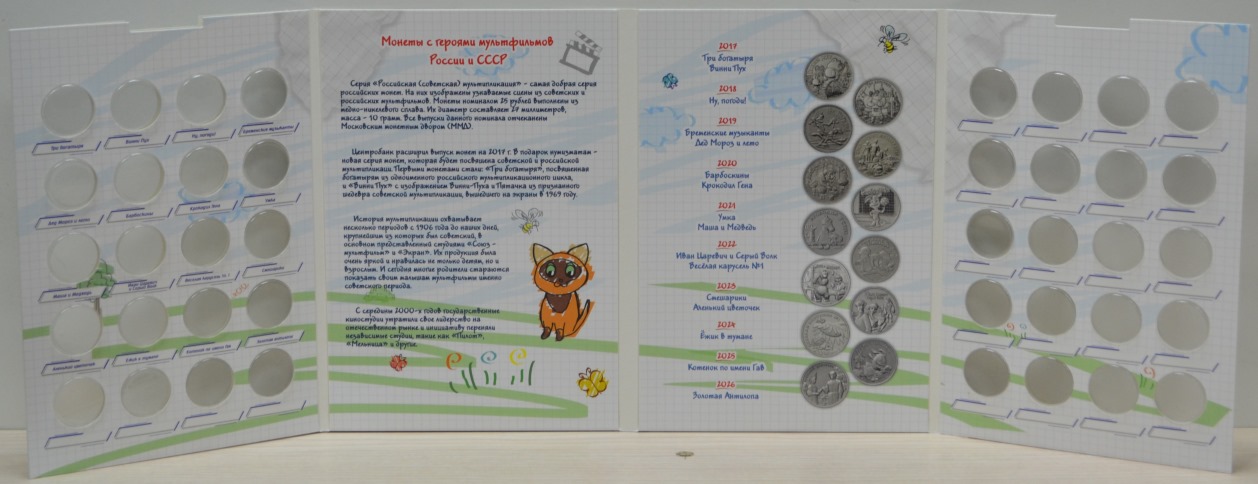 Три богатыря
Винни Пух
Ну, погоди!
Бременские музыканты
Дед Мороз и лето
Барбоскины
Крокодил Гена
Умка
Маша и Медведь
Иван Царевич
и Серый Волк
Веселая карусель № 1
Смешарики
Аленький цветочек
Ёжик в тумане
Котенок по имени Гав
Золотая антилопа
Монеты с героями мультфильмов
России и СССР
Серия «Российская (Советская) мультипликация» - самая добрая серия
российских монет. На них изображены узнаваемые сцены из советских и
российских мультфильмов. Монеты номиналом 25 рублей выполнены из
медно-никелевого сплава. Их диаметр составляет 27 миллиметров,
масса - 10 грамм. Все выпуски данного номинала отчеканены
Московским монетным двором (ММД).
Центробанк расширил выпуск монет на 2017 г. В подарок нумизматам -
новая серия монет, которая будет посвящена советской и российской
мультипликации. Первыми монетами стали: «Три богатыря», посвященная
богатырям из одноименного российского мультипликационного цикла,
и «Винни Пух» с изображением Винни-Пуха и Пятачка из признанного
шедевра советской мультипликации, вышедшего на экраны в 1969 году.
История мультипликации охватывает
несколько периодов с 1906 года до наших дней,
крупнейшим из которых был советский, в
основном представленный студиями «Союз -
мультфильм» и «Экран». Их продукция была
очень яркой и нравилась не только детям, но и
взрослым. И сегодня многие родители стараются
показать своим малышам мультфильмы именно
советского периода.
С середины 2000-х годов государственные
киностудии утратили свое лидерство на
отечественном рынке и инициативу переняли
независимые студии, такие как «Пилот»,
«Мельница» и другие.
2017
Три богатыря
Винни Пух
2018
Ну, погоди!
2019
Бременские музыканты
Дед Мороз и лето
2020
Барбоскины
Крокодил Гена
2021
Умка
Маша и Медведь
2022
Иван Царевич и Серый Волк
Весёлая карусель №1
2023
Смешарики
Аленький цветочек
2024
Ёжик в тумане
2025
Котенок по имени Гав
2026
Золотая Антилопа